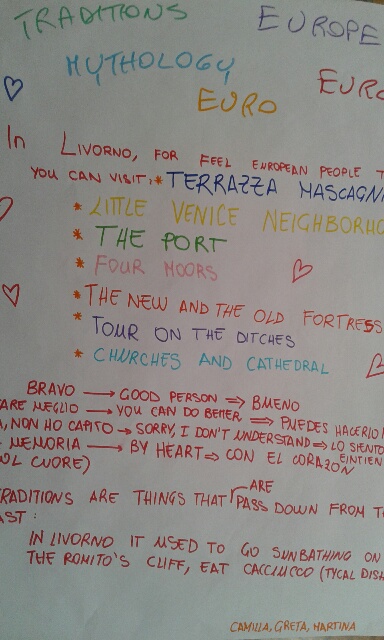 TRADITIONS EUROPE
MYTHOLOGY
EURO
In LIVORNO, FOR FEEL EUROPEAN PEOPLE
YOU CAN VISIT: * TERRAZZA MASCAGNI
* LITTLE VENICE NEIGHBORHO
* THE PORT
* FOUR MOORS
* THE NEW AND THE OLD FORTRESS
* TOUR ON THE DITCHES
* CHURCHES AND CATHEDRAL
BRAVO → GOOD PERSON ⇒ BUENO
ARE MEGLIO → YOU CAN DO BETTER ⇒ PUEDES HACERLO
, NON HO CAPITO → SORRY, I DON'T UNDERSTAND ⇒ LO SIENTO
MEMORIA → BY HEART ⇒ CON EL CORAZON
OL CUORE)
TRADITIONS ARE THINGS THAT ARE PASS DOWN FROM
AST:
IN LIVORNO IT USED TO GO SUNBATHING ON
THE ROMITO'S CLIFF, EAT CACCIUCCO (TYCAL DISH
CAMILLA, GRETA, MARTINA